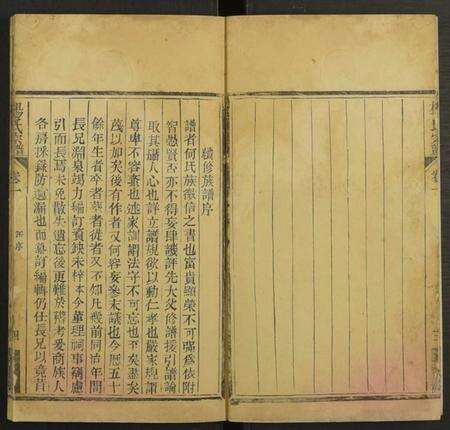 續修族譜序
譜者何氏族徵信之書也富貴顯榮不可強為依附
智愚賢否亦不得妄肆譏評先大父修譜援引譜論
取其攝人心也詳立譜規欲以勸仁孝也嚴家規謂
尊卑不容紊也述家訓謂法守不可忘也至矣盡矣
蔑以加矣後有作者又何容妄參末議也今歷五十
餘年生者卒者葬者徙者又不知凡幾前同治年間
長兄淵泉竭力編訂爲缺未梓本今董理祠事竊慮
引而長焉未免散失遺忘後更難於稽考爰商族人
各房採錄防遺漏也而纂訂編輯仍任長兄以竟昔
楊氏宗譜
卷一
序